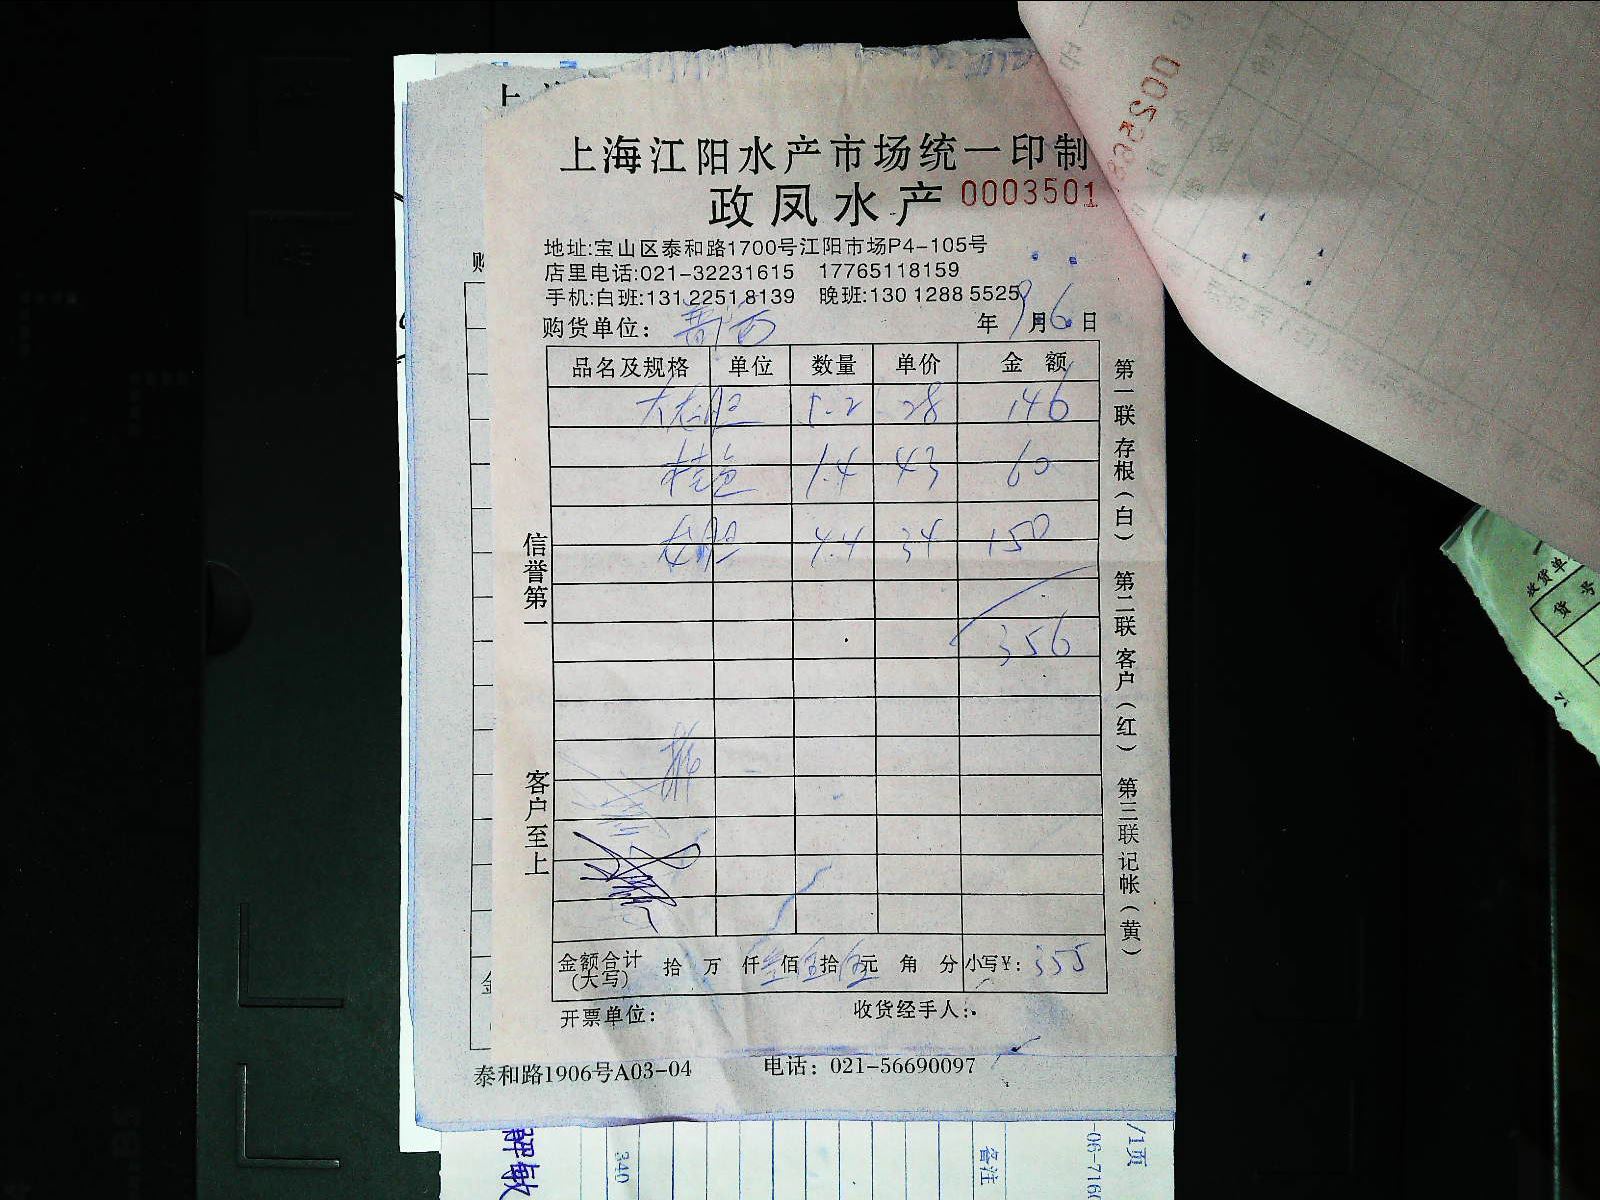 上海江阳水产市场统一印制
政凤水产 0003501
地址:宝山区泰和路1700号江阳市场P4-105号
店里电话:021-32231615 17765118159
手机:白班:131 2251 8139 晚班:130 1288 5525
购货单位: 年 9月6日
品名及规格 单位 数量 单价 金额
5.2 28 146
桂鱼 1.4 43 60
龙胆 4.4 34 150
356
信誉第一
客户至上
第一联 存根(白) 第二联 客户(红) 第三联 记帐(黄)
金额合计(大写) 拾 万 仟 叁佰 伍拾 伍元 角 分 小写¥: 355
开票单位: 收货经手人:
泰和路1906号A03-04 电话: 021-56690097
340
备注
/1页
收货单
货号